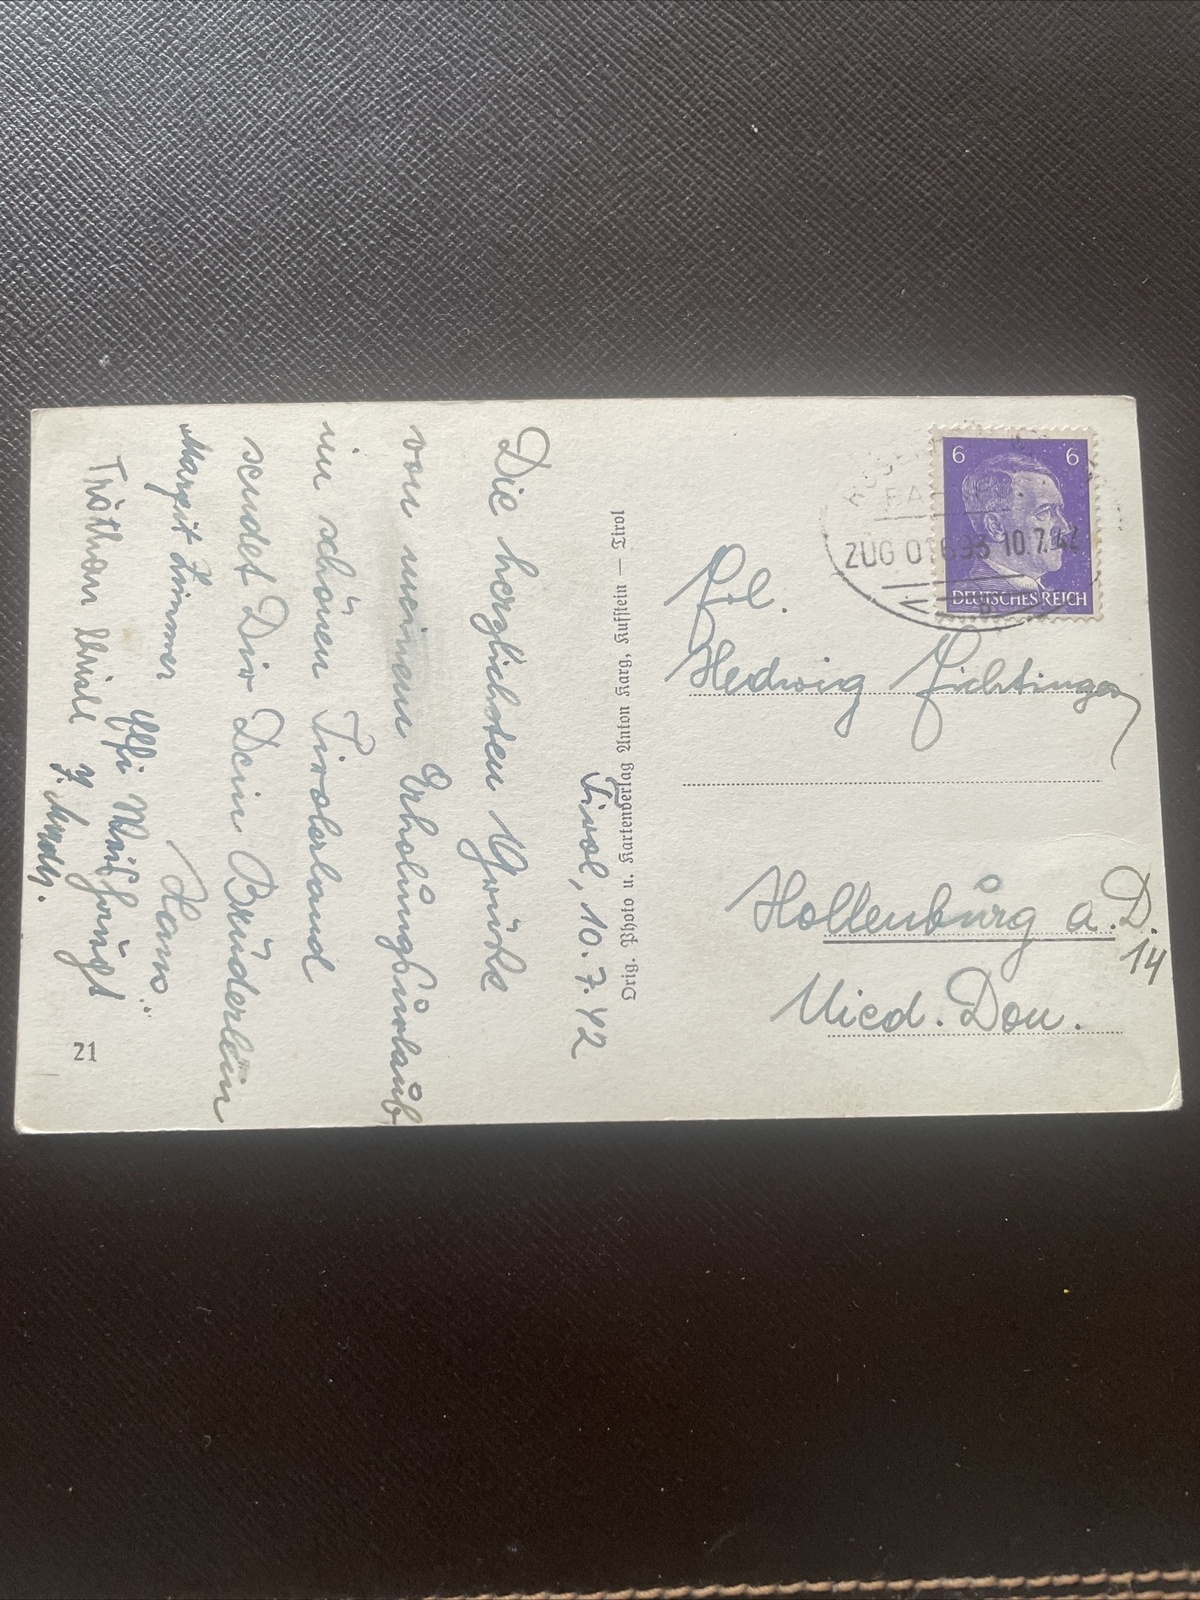 Tirol, 10.7.42
Die herzlichsten Grüße
von meinem Erholungsurlaub
im schönen Tirolerland
sendet Dir Dein Brüderlein
Hans
Margit Zimmer
21
Orig. Photo u. Kartenverlag Anton Karg, Kufstein — Tirol
6 6
DEUTSCHES REICH
ZUG 01693 10.7.42
Frl.
Hedwig Fichtinger
Hollenburg a. D.
14
Nied. Don.